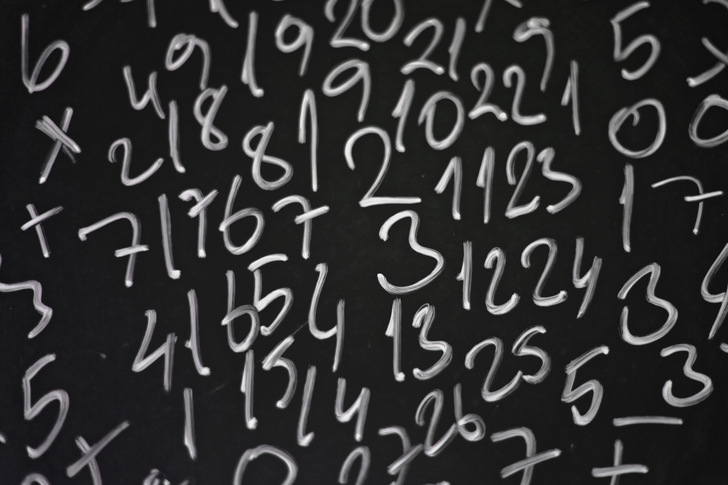 20
6 9 19 21 9 5
4 18 9 10 22 1 0
x 2 8 1 2 11 23 1 7
+ 7 17 6 7 3 12 24 3
3 16 5 4 13 25 3
5 4 1 15 14 26 5
+ 1 7 +